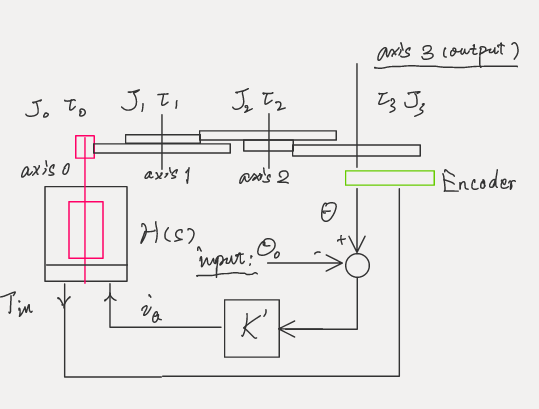 axis 3 (output)
J₀ τ₀
J₁ τ₁
J₂ τ₂
τ₃ J₃
axis 0
axis 1
axis 2
Encoder
H(s)
θ
input: θ₀
+
-
Tm
iₐ
K'